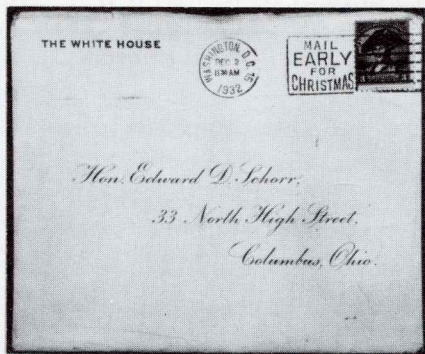 THE WHITE HOUSE
WASHINGTON, D.C. 15
DEC 2
1130 AM
1932
MAIL
EARLY
FOR
CHRISTMAS
Hon. Edward D. Schorr,
33 North High Street,
Columbus, Ohio.